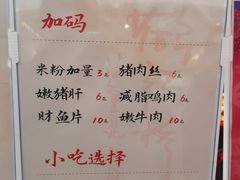 加码
米粉加量 3元 猪肉丝 6元
嫩猪肝 6元 减脂鸡肉 6元
财鱼片 10元 嫩牛肉 10元
小吃选择